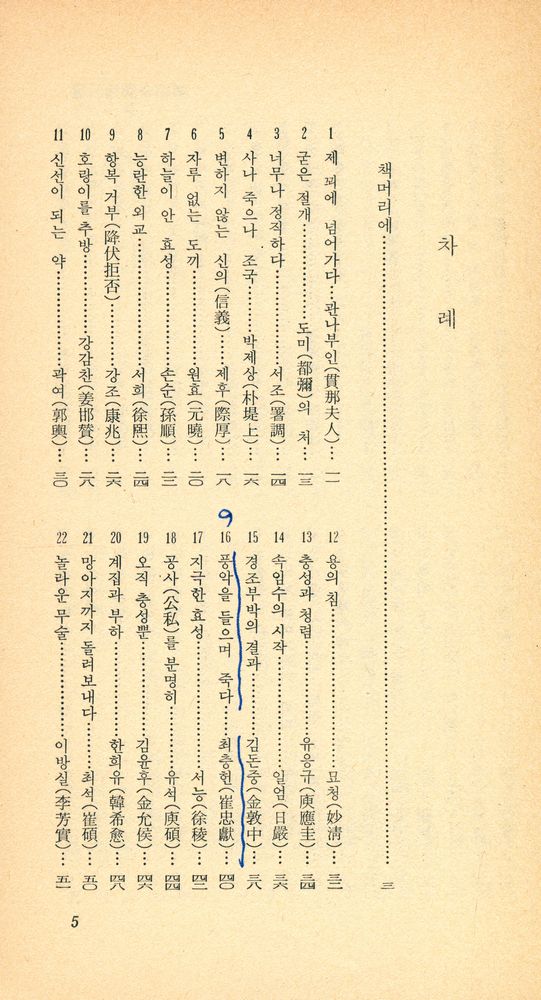 차 례
책머리에……………………三
1 제 꾀에 넘어가다…관나부인(貫那夫人)…一一
2 굳은 절개……………도미(都彌)의 처…一三
3 너무나 정직하다……………서조(署調)…一四
4 사나 죽으나 조국……박제상(朴堤上)…一六
5 변하지 않는 신의(信義)……제후(際厚)…一八
6 자루 없는 도끼……………원효(元曉)…二〇
7 하늘이 안 효성……………손순(孫順)…二二
8 능란한 외교……………서희(徐熙)…二四
9 항복 거부(降伏拒否)…………강조(康兆)…二六
10 호랑이를 추방…………강감찬(姜邯贊)…二八
11 신선이 되는 약……………곽여(郭輿)…三〇
12 용의 침……………묘청(妙淸)…三二
13 충성과 청렴……………유응규(庾應圭)…三四
14 속임수의 시작……………일엄(日嚴)…三六
15 경조부박의 결과…………김돈중(金敦中)…三八
9
16 풍악을 들으며 죽다……최충헌(崔忠獻)…四〇
17 지극한 효성……………서능(徐稜)…四二
18 공사(公私)를 분명히…………유석(庾碩)…四四
19 오직 충성뿐……………김윤후(金允侯)…四六
20 계집과 부하……………한희유(韓希愈)…四八
21 망아지까지 돌려보내다………최석(崔碩)…五〇
22 놀라운 무술……………이방실(李芳實)…五一
5